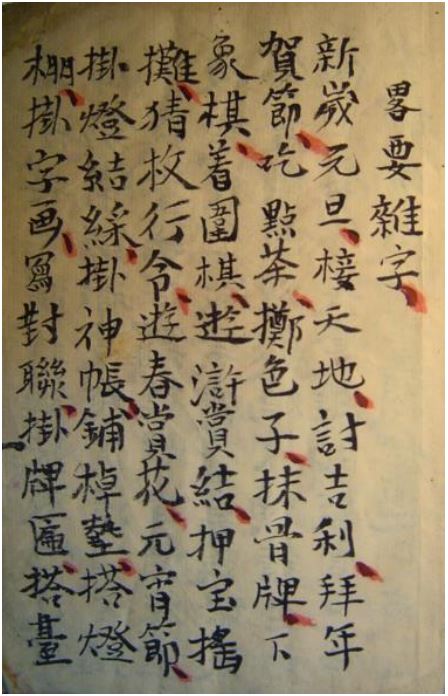 畧要雜字、
新歲元旦、接天地、討吉利、拜年
賀節、吃點茶、擲色子、抹骨牌、下
象棋、着圍棋、遊滸賞結、押宝搖
攤、猜枚行令、遊春賞花、元宵節、
掛燈結綵、掛神帳、鋪棹墊、搭燈
棚、掛字画、寫對聯、掛牌匾、搭臺